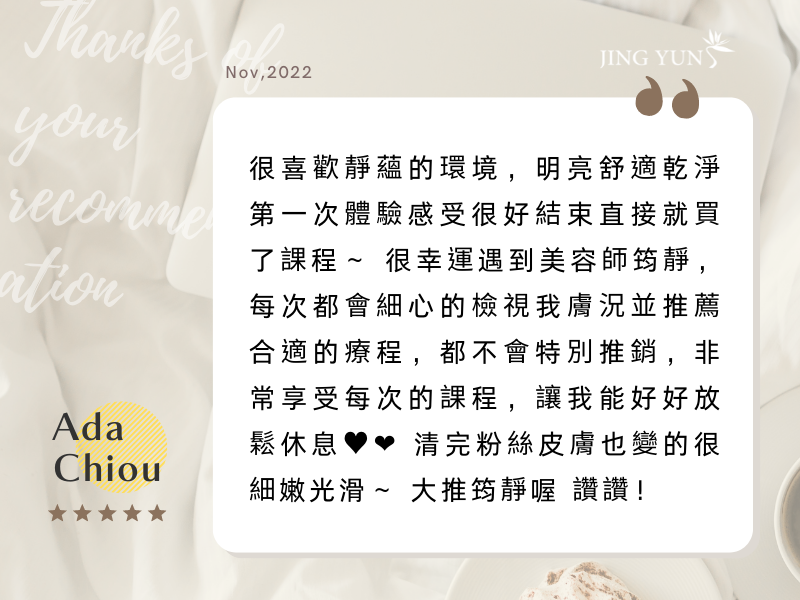 Thanks of
your
recommen
ation
Nov,2022
JING YUN
很喜歡靜蘊的環境，明亮舒適乾淨
第一次體驗感受很好結束直接就買
了課程～ 很幸運遇到美容師筠靜，
每次都會細心的檢視我膚況並推薦
合適的療程，都不會特別推銷，非
常享受每次的課程，讓我能好好放
鬆休息♥❤ 清完粉絲皮膚也變的很
細嫩光滑～ 大推筠靜喔 讚讚！
Ada
Chiou